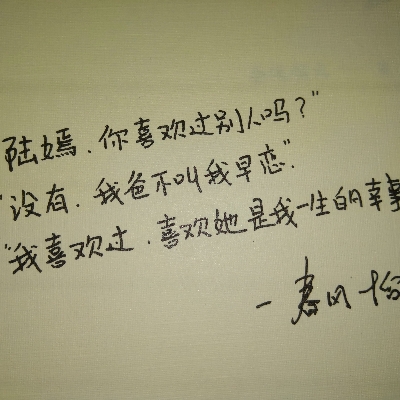 陆嫣、你喜欢过别人吗？"
"没有、我爸不叫我早恋"
"我喜欢过、喜欢她是我一生的幸事
一春风十